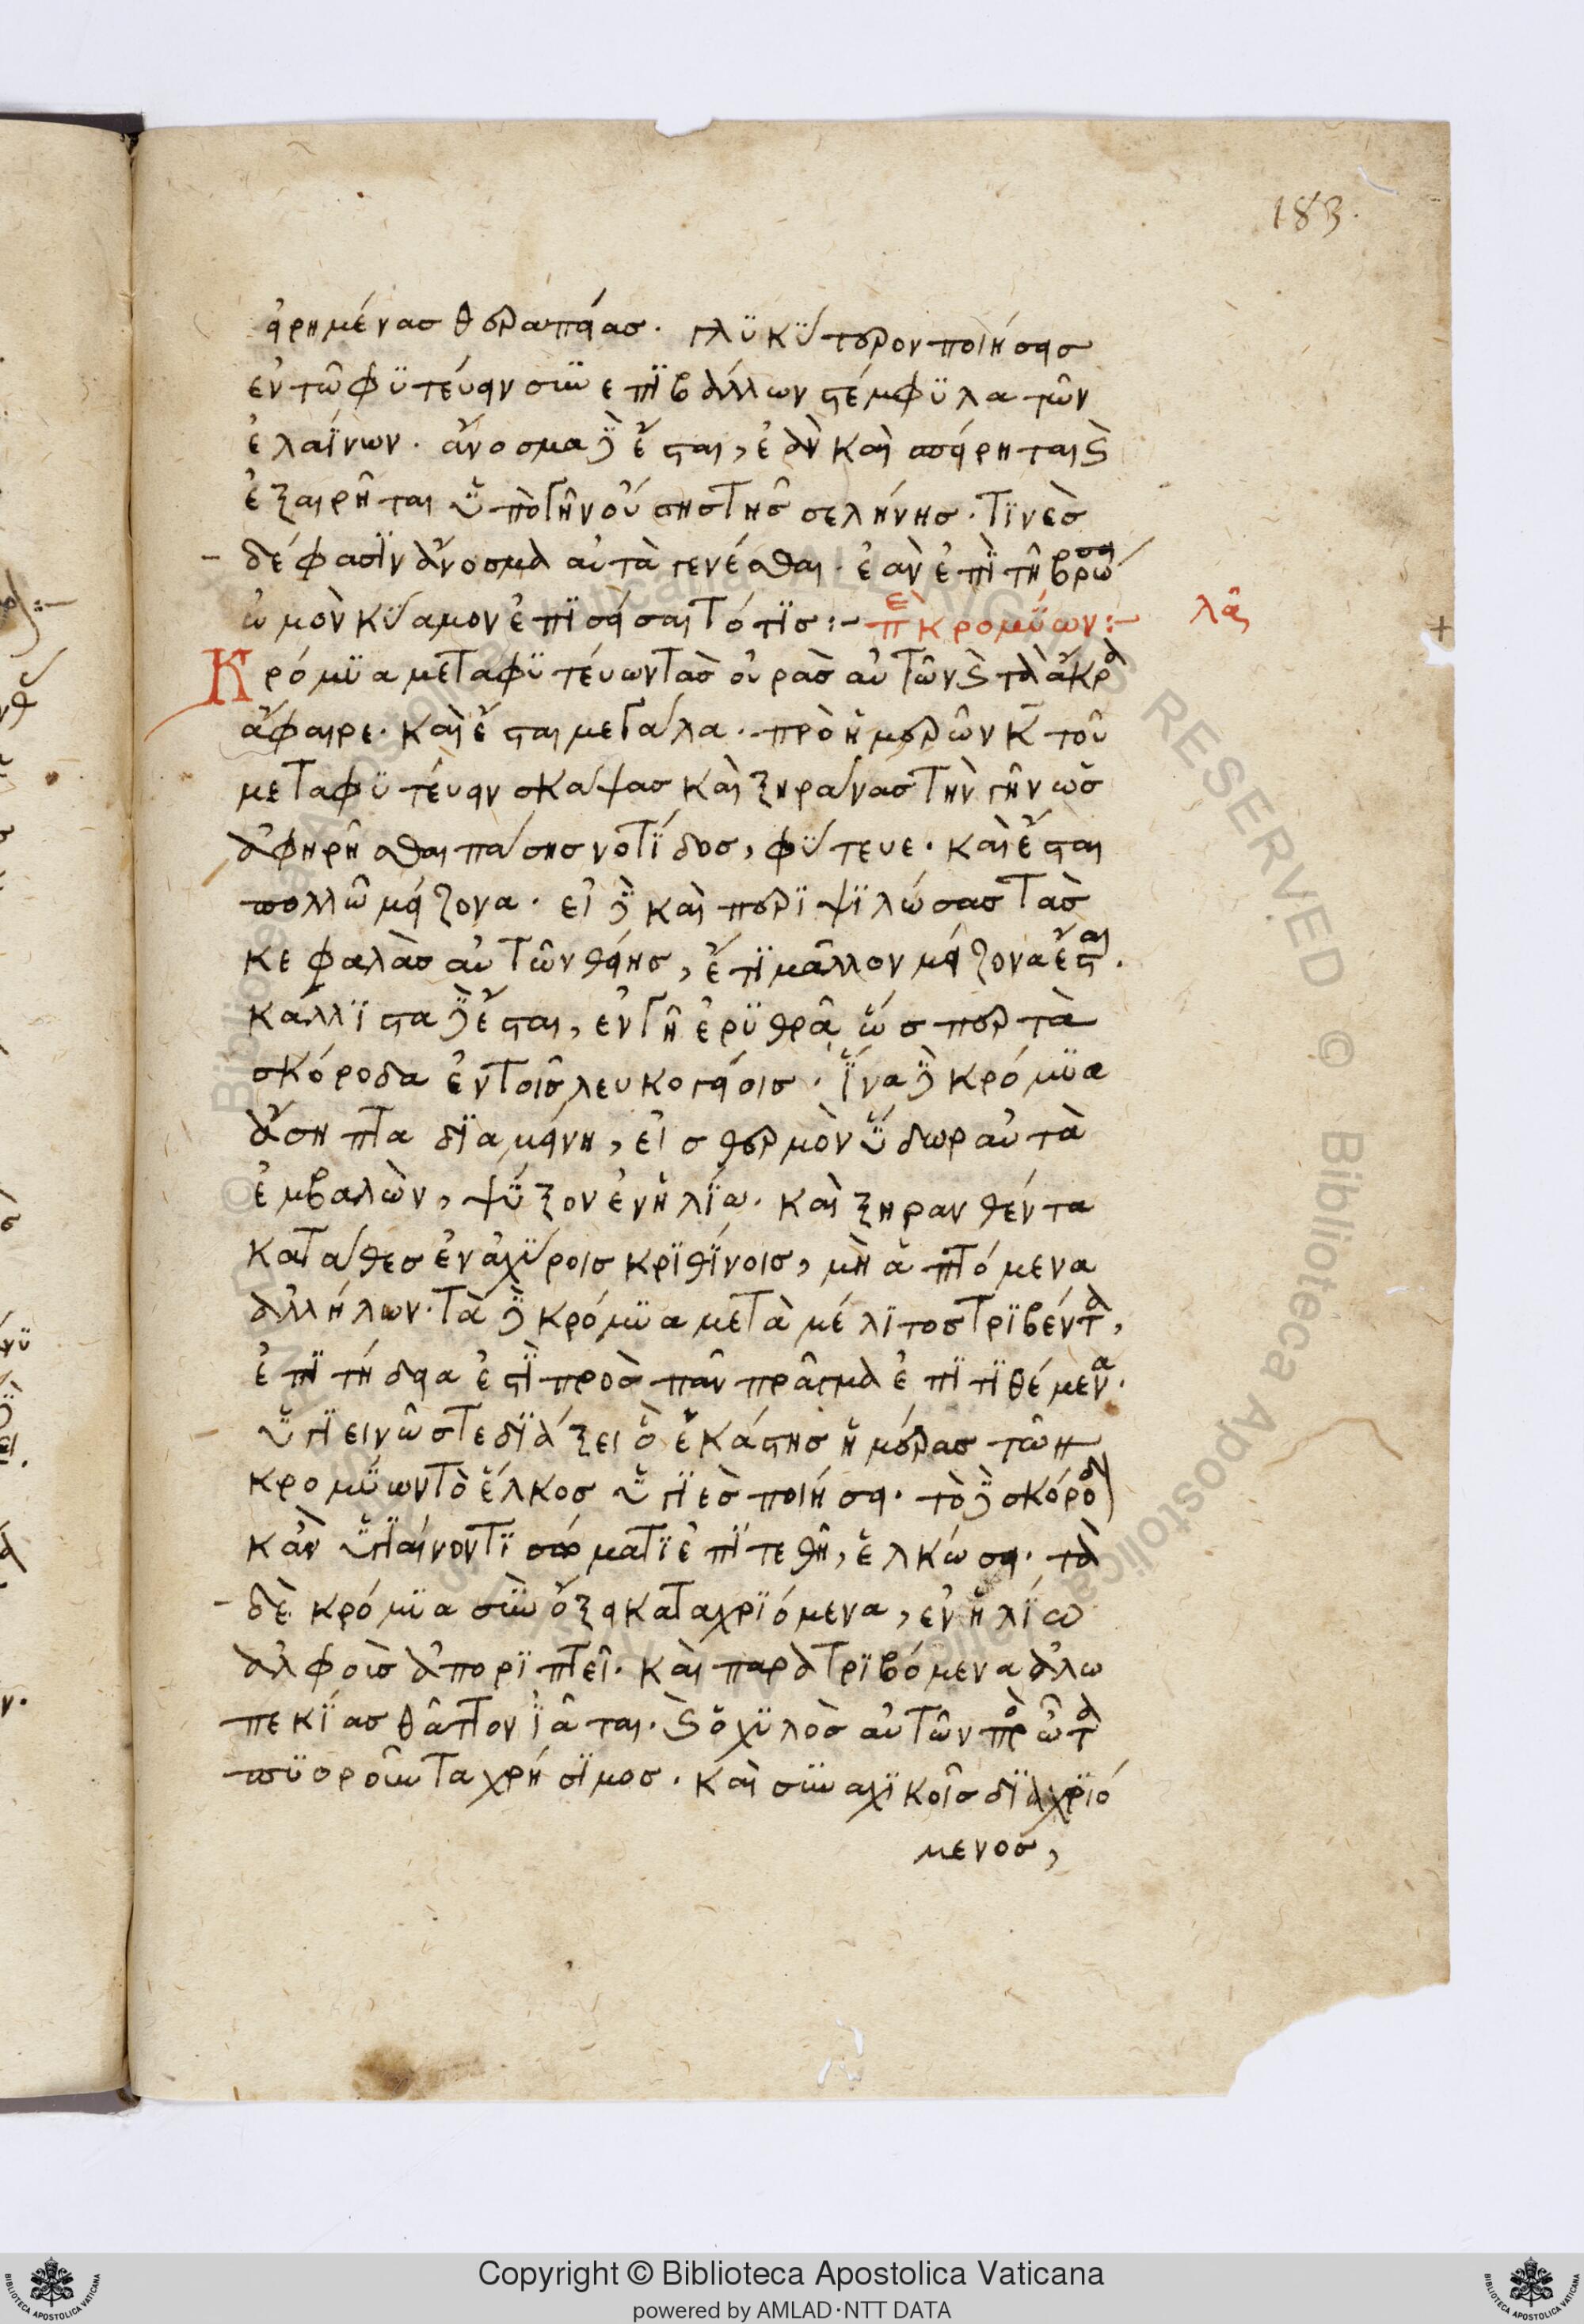 183.
εἰρημένας θεραπείας. γλϋκΰτερον ποιήσεις
ἐν τῶ φϋτεύειν σὺν ἐπϊβάλλων στέμφϋλα τῶν
ἐλαΐνων. ἄνοσμα δὲ ἔσται, ἐὰν καὶ σπείρηται καὶ
ἐξαιρῆται ὑπὸ γῆν οὔσης τῆς σελήνης. τϊνὲς
δέ φασϊν ἄνοσμα αὐτὰ γενέσθαι. ἐὰν ἐπϊ τῆ βρώσει
ὠμὸν κΰαμον ἐπϊσείσαιτό τϊς :- περὶ κρομΰων :-
λα
Κρόμϋα μεταφϋτεύων τὰς οὐρὰς αὐτῶν καὶ τὰ ἄκρα
ἄφαιρε. καὶ ἔσται μεγάλα. πρὸ ἡμερῶν κ τοῦ
μεταφϋτεύειν σκάψας καὶ ξηράνας τὴν γῆν ὡς
ἀφηρῆσθαι πάσης νοτΐδος, φΰτευε. καὶ ἔσται
πολλῶ μείζονα. εἰ δὲ καὶ περϊψϊλώσας τὰς
κεφαλὰς αὐτῶν θείης, ἔτϊ μᾶλλον μείζονα ἔσται.
κάλλϊστα δὲ ἔσται, ἐν γῆ ἐρϋθρᾶ ὥσπερ τὰ
σκόροδα ἐν τοῖς λευκογείοις. ἵνα δὲ κρόμϋα
ἄσηπτα δϊαμείνη, εἰς θερμὸν ὕδωρ αὐτὰ
ἐμβαλὼν, ψΰξον ἐν ἡλΐω. καὶ ξηρανθέντα
κατάθες ἐν ἀχΰροις κρϊθΐνοις, μὴ ἁπτόμενα
ἀλλήλων. τὰ δὲ κρόμϋα μετὰ μέλϊτος τρϊβέντα,
ἐπϊτήδεια ἐστϊ πρὸς πᾶν πρᾶγμα ἐπϊτϊθέμενα.
ὑγϊεινῶς τε δϊάξει ὁ ἑκάστης ἡμέρας τῶν
κρομΰων τὸ ἕλκος ὑγϊὲς ποιήσει. τὸ δὲ σκόροδον
κἂν ὑγϊαίνοντϊ σώματϊ ἐπϊτεθῆ, ἑλκώσει. τὰ
δὲ κρόμϋα σὺν ὄξει καταχρϊόμενα, ἐν ἡλΐω
ἀλφοὺς ἀπορϊπτεῖ. καὶ παρατρϊβόμενα ἀλω
πεκΐας θᾶττον ἰᾶται. καὶ ὁ χϋλὸς αὐτῶν πρὸς ὦτα
πϋοροοῦντα χρήσϊμος. καὶ συναχϊκοῖς δϊαχρϊό
μενος,
Copyright © Biblioteca Apostolica Vaticana
powered by AMLAD·NTT DATA